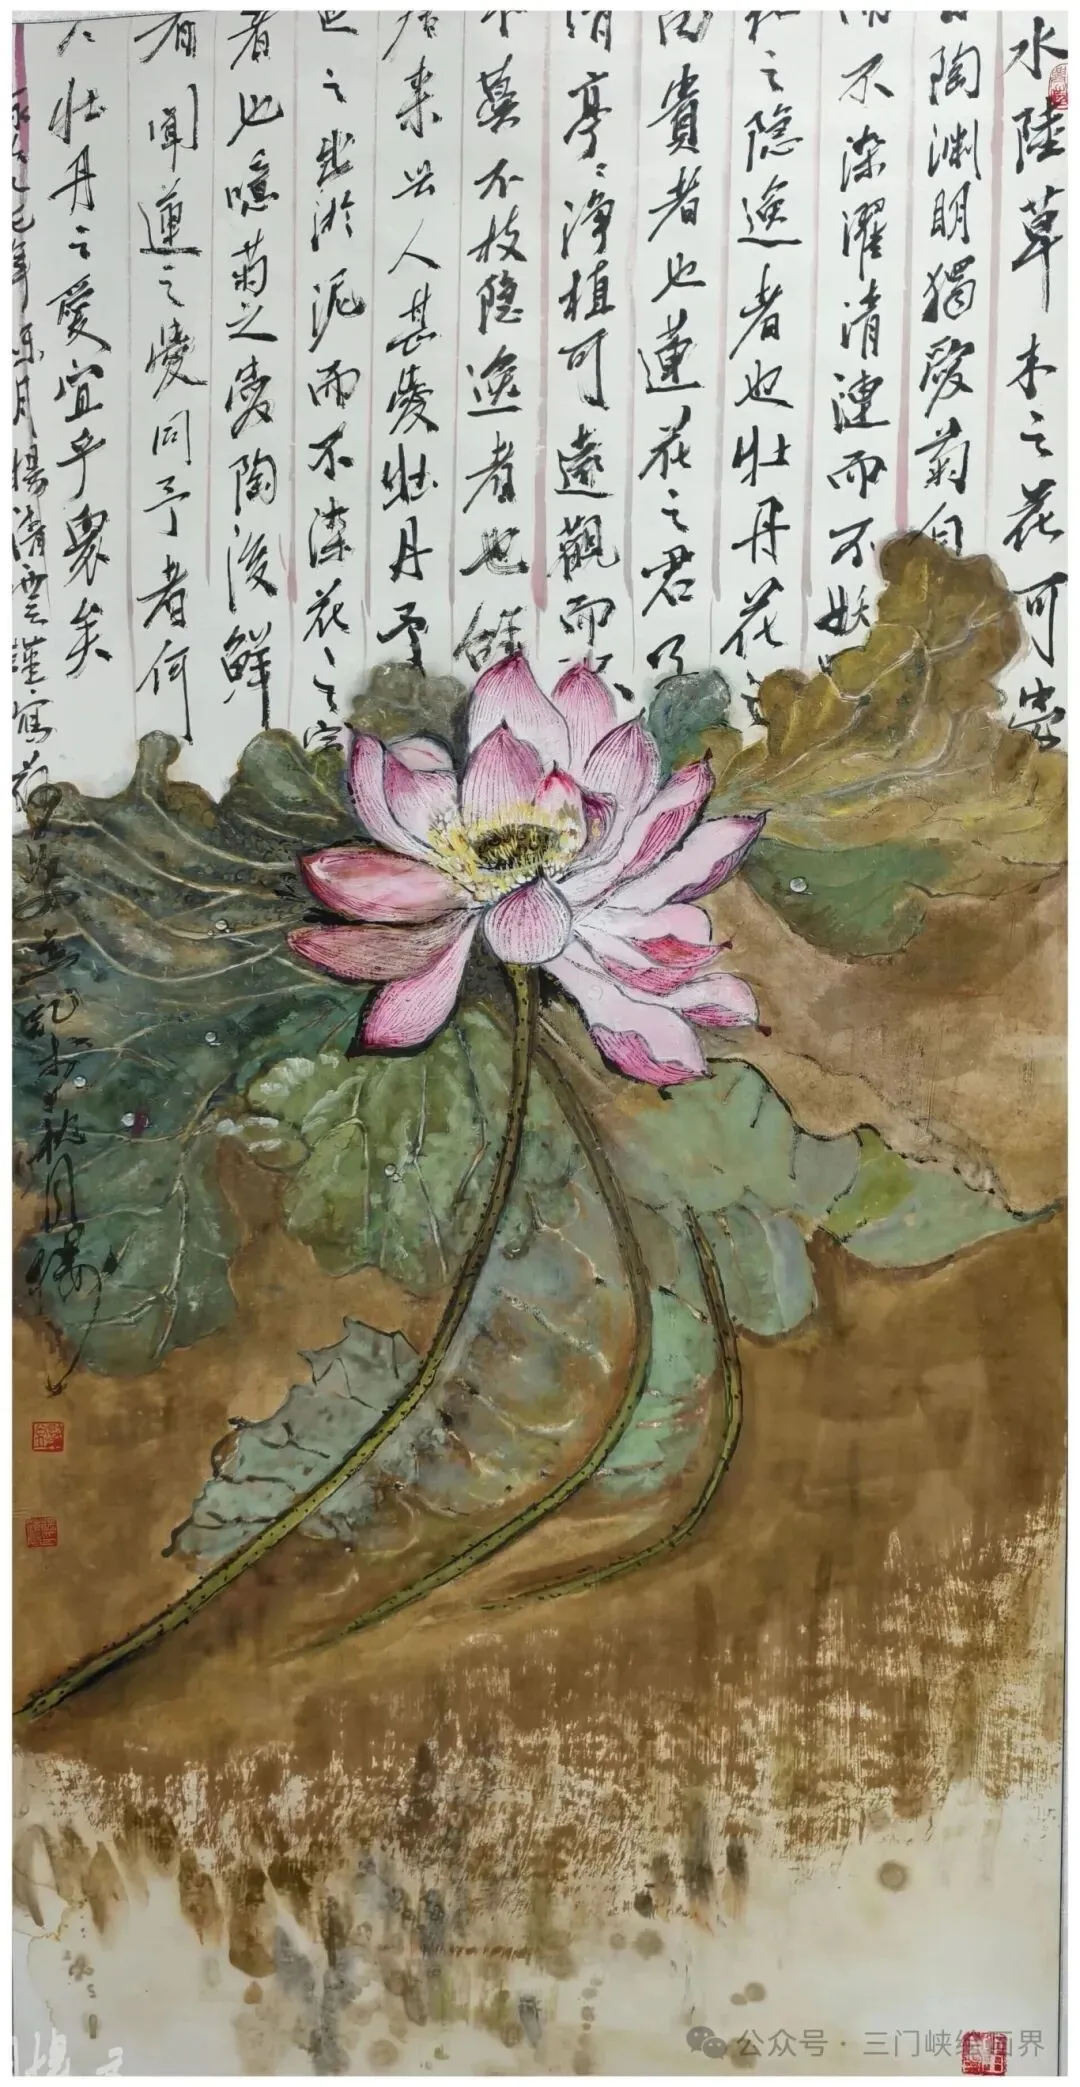 水陸草木之花可愛
陶渊明獨愛菊自
不染濯清漣而不妖
之隐逸者也牡丹花
貴者也蓮花之君
清亭〻净植可遠觀而
蔓不枝隐逸者也
来世人甚愛牡丹予
之出淤泥而不染花之富
者也噫菊之愛陶後鮮
有聞蓮之愛同予者何
牡丹之愛宜乎衆矣
乙巳年 月楊清雲謹寫荷 並記於 秋月
公众号·三门峡绘画界